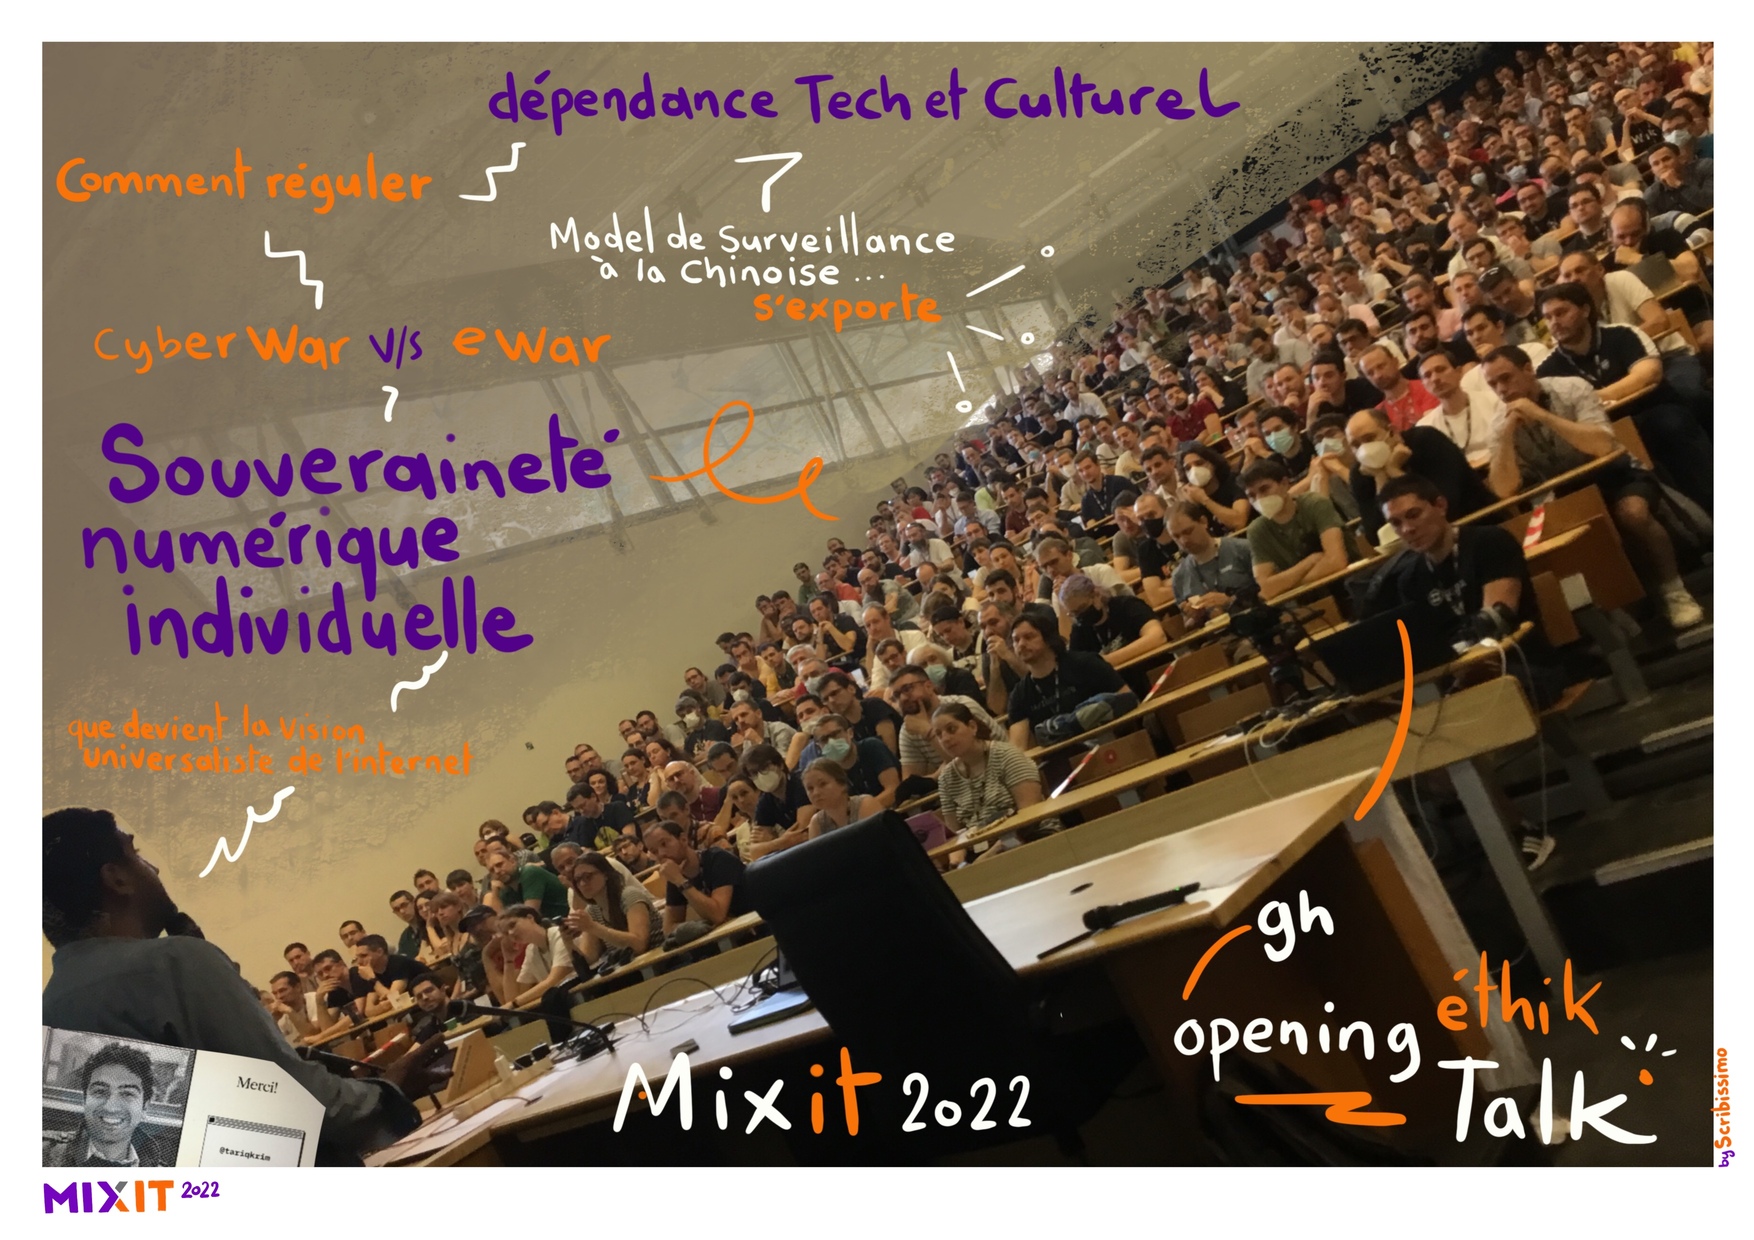 dépendance Tech et Culturel
Comment réguler
Model de Surveillance
à la Chinoise ...
s'exporte
Cyber War v/s e War
Souveraineté
numérique
individuelle
que devient la Vision
universaliste de l'internet
Merci!
@tariqkrim
Mixit 2022
gh
opening
éthik
Talk
by Scribissimo
MIXIT 2022